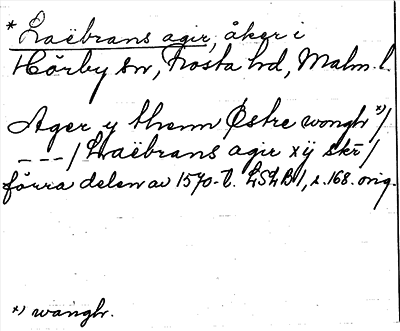 * Laëbrans agir, åker i
Hörby sn, Frosta hd, Malm. l.
Ager y thenn Østre wongh *)/
---/ Laëbrans agir xÿ skr̄ /
förra delen av 1570-t. LSLB 1, s. 168. orig.
*) wangh.